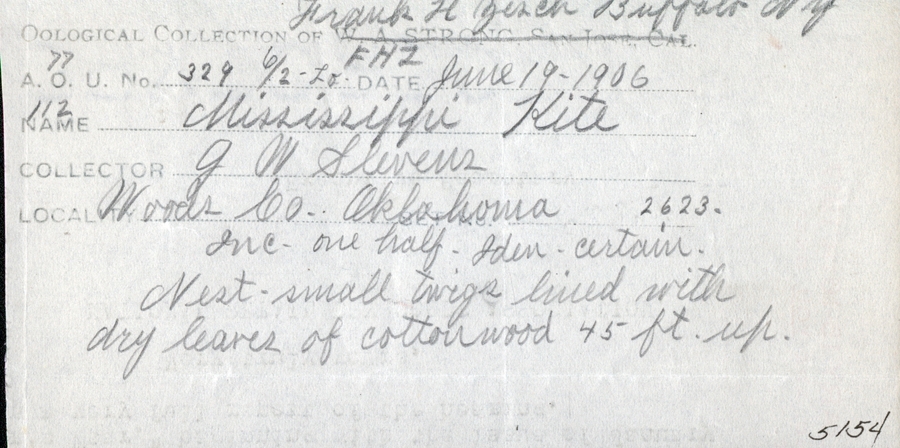 Frank H Zesch Buffalo Ny
OOLOGICAL COLLECTION OF W. A. STRONG, SAN JOSE, CAL.
77 FHZ
A. O. U. No. 329 6/2- DATE June 19-1906
112
NAME Mississippi Kite
COLLECTOR G W Stevens
LOCALITY Woods Co.. Oklahoma 2623.
Inc- one half- Iden- certain.
Nest- small twigs lined with
dry leaves of cottonwood 45 ft. up.
5154